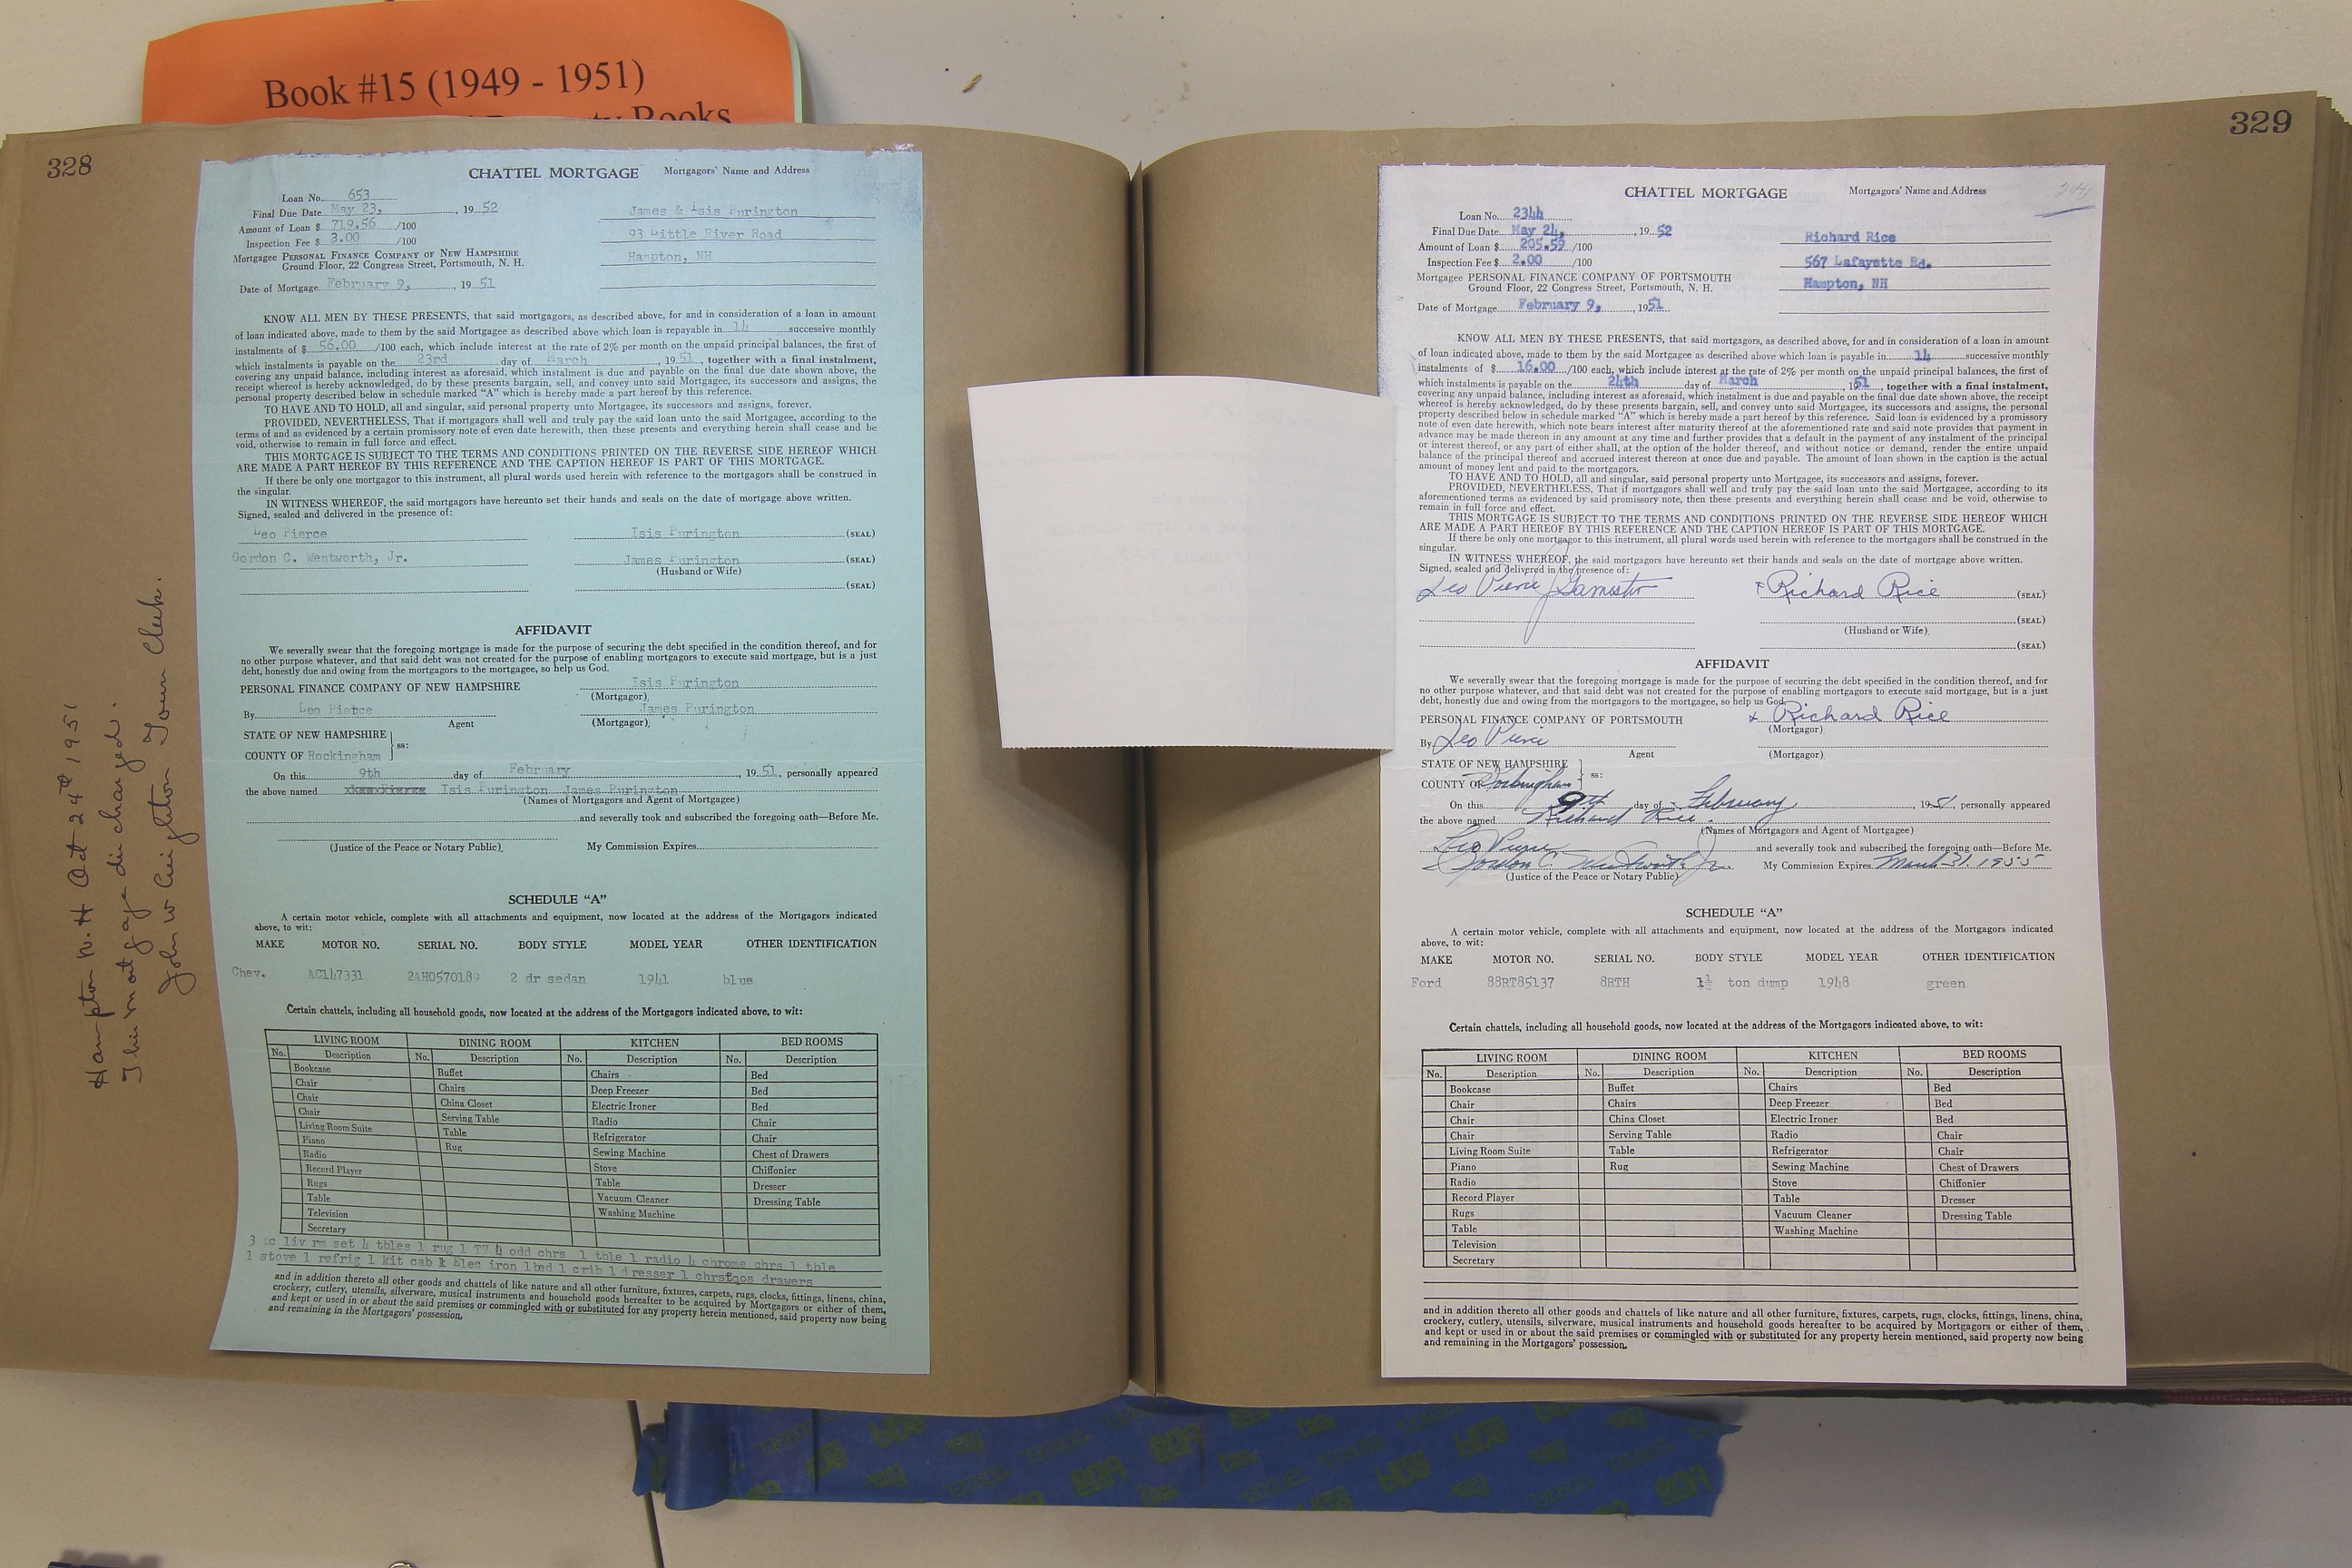 Book #15 (1949 - 1951)
Books
328
CHATTEL MORTGAGE Mortgagors' Name and Address
Loan No. 653
Final Due Date May 23, , 19 52
Amount of Loan $ 719.56 /100
Inspection Fee $ 3.00 /100
Mortgagee PERSONAL FINANCE COMPANY OF NEW HAMPSHIRE
Ground Floor, 22 Congress Street, Portsmouth, N. H.
Date of Mortgage February 9, , 19 51
James & Isis Purington
93 Little River Road
Hampton, NH
KNOW ALL MEN BY THESE PRESENTS, that said mortgagors, as described above, for and in consideration of a loan in amount
of loan indicated above, made to them by the said Mortgagee as described above which loan is repayable in 14 successive monthly
instalments of $ 56.00 /100 each, which include interest at the rate of 2% per month on the unpaid principal balances, the first of
which instalments is payable on the 23rd day of March , 19 51, together with a final instalment,
covering any unpaid balance, including interest as aforesaid, which instalment is due and payable on the final due date shown above, the
receipt whereof is hereby acknowledged, do by these presents bargain, sell, and convey unto said Mortgagee, its successors and assigns, the
personal property described below in schedule marked "A" which is hereby made a part hereof by this reference.
TO HAVE AND TO HOLD, all and singular, said personal property unto Mortgagee, its successors and assigns, forever.
PROVIDED, NEVERTHELESS, That if mortgagors shall well and truly pay the said loan unto the said Mortgagee, according to the
terms of and as evidenced by a certain promissory note of even date herewith, then these presents and everything herein shall cease and be
void, otherwise to remain in full force and effect.
THIS MORTGAGE IS SUBJECT TO THE TERMS AND CONDITIONS PRINTED ON THE REVERSE SIDE HEREOF WHICH
ARE MADE A PART HEREOF BY THIS REFERENCE AND THE CAPTION HEREOF IS PART OF THIS MORTGAGE.
If there be only one mortgagor to this instrument, all plural words used herein with reference to the mortgagors shall be construed in
the singular.
IN WITNESS WHEREOF, the said mortgagors have hereunto set their hands and seals on the date of mortgage above written.
Signed, sealed and delivered in the presence of:
Leo Pierce Isis Purington (SEAL)
Gordon C. Wentworth, Jr. James Purington (SEAL)
(Husband or Wife)
(SEAL)
AFFIDAVIT
We severally swear that the foregoing mortgage is made for the purpose of securing the debt specified in the condition thereof, and for
no other purpose whatever, and that said debt was not created for the purpose of enabling mortgagors to execute said mortgage, but is a just
debt, honestly due and owing from the mortgagors to the mortgagee, so help us God.
PERSONAL FINANCE COMPANY OF NEW HAMPSHIRE Isis Purington
(Mortgagor)
By Leo Pierce James Purington
Agent (Mortgagor)
STATE OF NEW HAMPSHIRE
COUNTY OF Rockingham ss:
On this 9th day of February , 19 51, personally appeared
the above named Isis Purington James Purington
(Names of Mortgagors and Agent of Mortgagee)
and severally took and subscribed the foregoing oath—Before Me.
(Justice of the Peace or Notary Public) My Commission Expires
SCHEDULE "A"
A certain motor vehicle, complete with all attachments and equipment, now located at the address of the Mortgagors indicated
above, to wit:
MAKE MOTOR NO. SERIAL NO. BODY STYLE MODEL YEAR OTHER IDENTIFICATION
Chev. AC147331 2AH0570189 2 dr sedan 1941 blue
Certain chattels, including all household goods, now located at the address of the Mortgagors indicated above, to wit:
LIVING ROOM DINING ROOM KITCHEN BED ROOMS
No. Description No. Description No. Description No. Description
Bookcase Buffet Chairs Bed
Chair Chairs Deep Freezer Bed
Chair China Closet Electric Ironer Bed
Chair Serving Table Radio Chair
Living Room Suite Table Refrigerator Chair
Piano Rug Sewing Machine Chest of Drawers
Radio Stove Chiffonier
Record Player Table Dresser
Rugs Vacuum Cleaner Dressing Table
Table Washing Machine
Television
Secretary
3 pc liv rm set 4 tbles 1 rug 1 TV 4 odd chrs 1 tble 1 radio 4 chrome chrs 1 tble
1 stove 1 refrig 1 kit cab 1 Elec iron 1bed 1 crib 1 dresser 1 drawers
and in addition thereto all other goods and chattels of like nature and all other furniture, fixtures, carpets, rugs, clocks, fittings, linens, china,
crockery, cutlery, utensils, silverware, musical instruments and household goods hereafter to be acquired by Mortgagors or either of them,
and kept or used in or about the said premises or commingled with or substituted for any property herein mentioned, said property now being
and remaining in the Mortgagors' possession.
Hampton N. H Oct 24th 1951
This mortgage discharged.
John W Creighton Town Clerk.
329
CHATTEL MORTGAGE Mortgagors' Name and Address
Loan No. 2344
Final Due Date May 24, , 19 52
Amount of Loan $ 205.59 /100
Inspection Fee $ 2.00 /100
Mortgagee PERSONAL FINANCE COMPANY OF PORTSMOUTH
Ground Floor, 22 Congress Street, Portsmouth, N. H.
Date of Mortgage February 9, , 1951
Richard Rice
567 Lafayette Rd.
Hampton, NH
KNOW ALL MEN BY THESE PRESENTS, that said mortgagors, as described above, for and in consideration of a loan in amount
of loan indicated above, made to them by the said Mortgagee as described above which loan is payable in 14 successive monthly
instalments of $ 16.00 /100 each, which include interest at the rate of 2% per month on the unpaid principal balances, the first of
which instalments is payable on the 24th day of March , 1951, together with a final instalment,
covering any unpaid balance, including interest as aforesaid, which instalment is due and payable on the final due date shown above, the receipt
whereof is hereby acknowledged, do by these presents bargain, sell, and convey unto said Mortgagee, its successors and assigns, the personal
property described below in schedule marked "A" which is hereby made a part hereof by this reference. Said loan is evidenced by a promissory
note of even date herewith, which note bears interest after maturity thereof at the aforementioned rate and said note provides that payment in
advance may be made thereon in any amount at any time and further provides that a default in the payment of any instalment of the principal
or interest thereof, or any part of either shall, at the option of the holder thereof, and without notice or demand, render the entire unpaid
balance of the principal thereof and accrued interest thereon at once due and payable. The amount of loan shown in the caption is the actual
amount of money lent and paid to the mortgagors.
TO HAVE AND TO HOLD, all and singular, said personal property unto Mortgagee, its successors and assigns, forever.
PROVIDED, NEVERTHELESS, That if mortgagors shall well and truly pay the said loan unto the said Mortgagee, according to its
aforementioned terms as evidenced by said promissory note, then these presents and everything herein shall cease and be void, otherwise to
remain in full force and effect.
THIS MORTGAGE IS SUBJECT TO THE TERMS AND CONDITIONS PRINTED ON THE REVERSE SIDE HEREOF WHICH
ARE MADE A PART HEREOF BY THIS REFERENCE AND THE CAPTION HEREOF IS PART OF THIS MORTGAGE.
If there be only one mortgagor to this instrument, all plural words used herein with reference to the mortgagors shall be construed in the
singular.
IN WITNESS WHEREOF, the said mortgagors have hereunto set their hands and seals on the date of mortgage above written.
Signed, sealed and delivered in the presence of:
Leo Pierce Richard Rice (SEAL)
(SEAL)
(Husband or Wife)
(SEAL)
AFFIDAVIT
We severally swear that the foregoing mortgage is made for the purpose of securing the debt specified in the condition thereof, and for
no other purpose whatever, and that said debt was not created for the purpose of enabling mortgagors to execute said mortgage, but is a just
debt, honestly due and owing from the mortgagors to the mortgagee, so help us God.
PERSONAL FINANCE COMPANY OF PORTSMOUTH x Richard Rice
(Mortgagor)
By Leo Pierce
Agent (Mortgagor)
STATE OF NEW HAMPSHIRE
COUNTY OF Rockingham ss:
On this 9th day of February , 1951, personally appeared
the above named Richard Rice.
(Names of Mortgagors and Agent of Mortgagee)
Leo Pierce and severally took and subscribed the foregoing oath—Before Me.
Gordon C. Wentworth Jr. My Commission Expires March 31, 1955
(Justice of the Peace or Notary Public)
SCHEDULE "A"
A certain motor vehicle, complete with all attachments and equipment, now located at the address of the Mortgagors indicated
above, to wit:
MAKE MOTOR NO. SERIAL NO. BODY STYLE MODEL YEAR OTHER IDENTIFICATION
Ford 88RT85137 8RTH 1½ ton dump 1948 green
Certain chattels, including all household goods, now located at the address of the Mortgagors indicated above, to wit:
LIVING ROOM DINING ROOM KITCHEN BED ROOMS
No. Description No. Description No. Description No. Description
Bookcase Buffet Chairs Bed
Chair Chairs Deep Freezer Bed
Chair China Closet Electric Ironer Bed
Chair Serving Table Radio Chair
Living Room Suite Table Refrigerator Chair
Piano Rug Sewing Machine Chest of Drawers
Radio Stove Chiffonier
Record Player Table Dresser
Rugs Vacuum Cleaner Dressing Table
Table Washing Machine
Television
Secretary
and in addition thereto all other goods and chattels of like nature and all other furniture, fixtures, carpets, rugs, clocks, fittings, linens, china,
crockery, cutlery, utensils, silverware, musical instruments and household goods hereafter to be acquired by Mortgagors or either of them,
and kept or used in or about the said premises or commingled with or substituted for any property herein mentioned, said property now being
and remaining in the Mortgagors' possession.